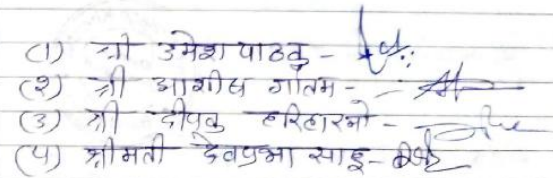 (१) श्री उमेश पाठक -
(२) श्री आशीष गौतम -
(३) श्री दीपक हरिहारनो -
(४) श्रीमती देवप्रभा साहू -